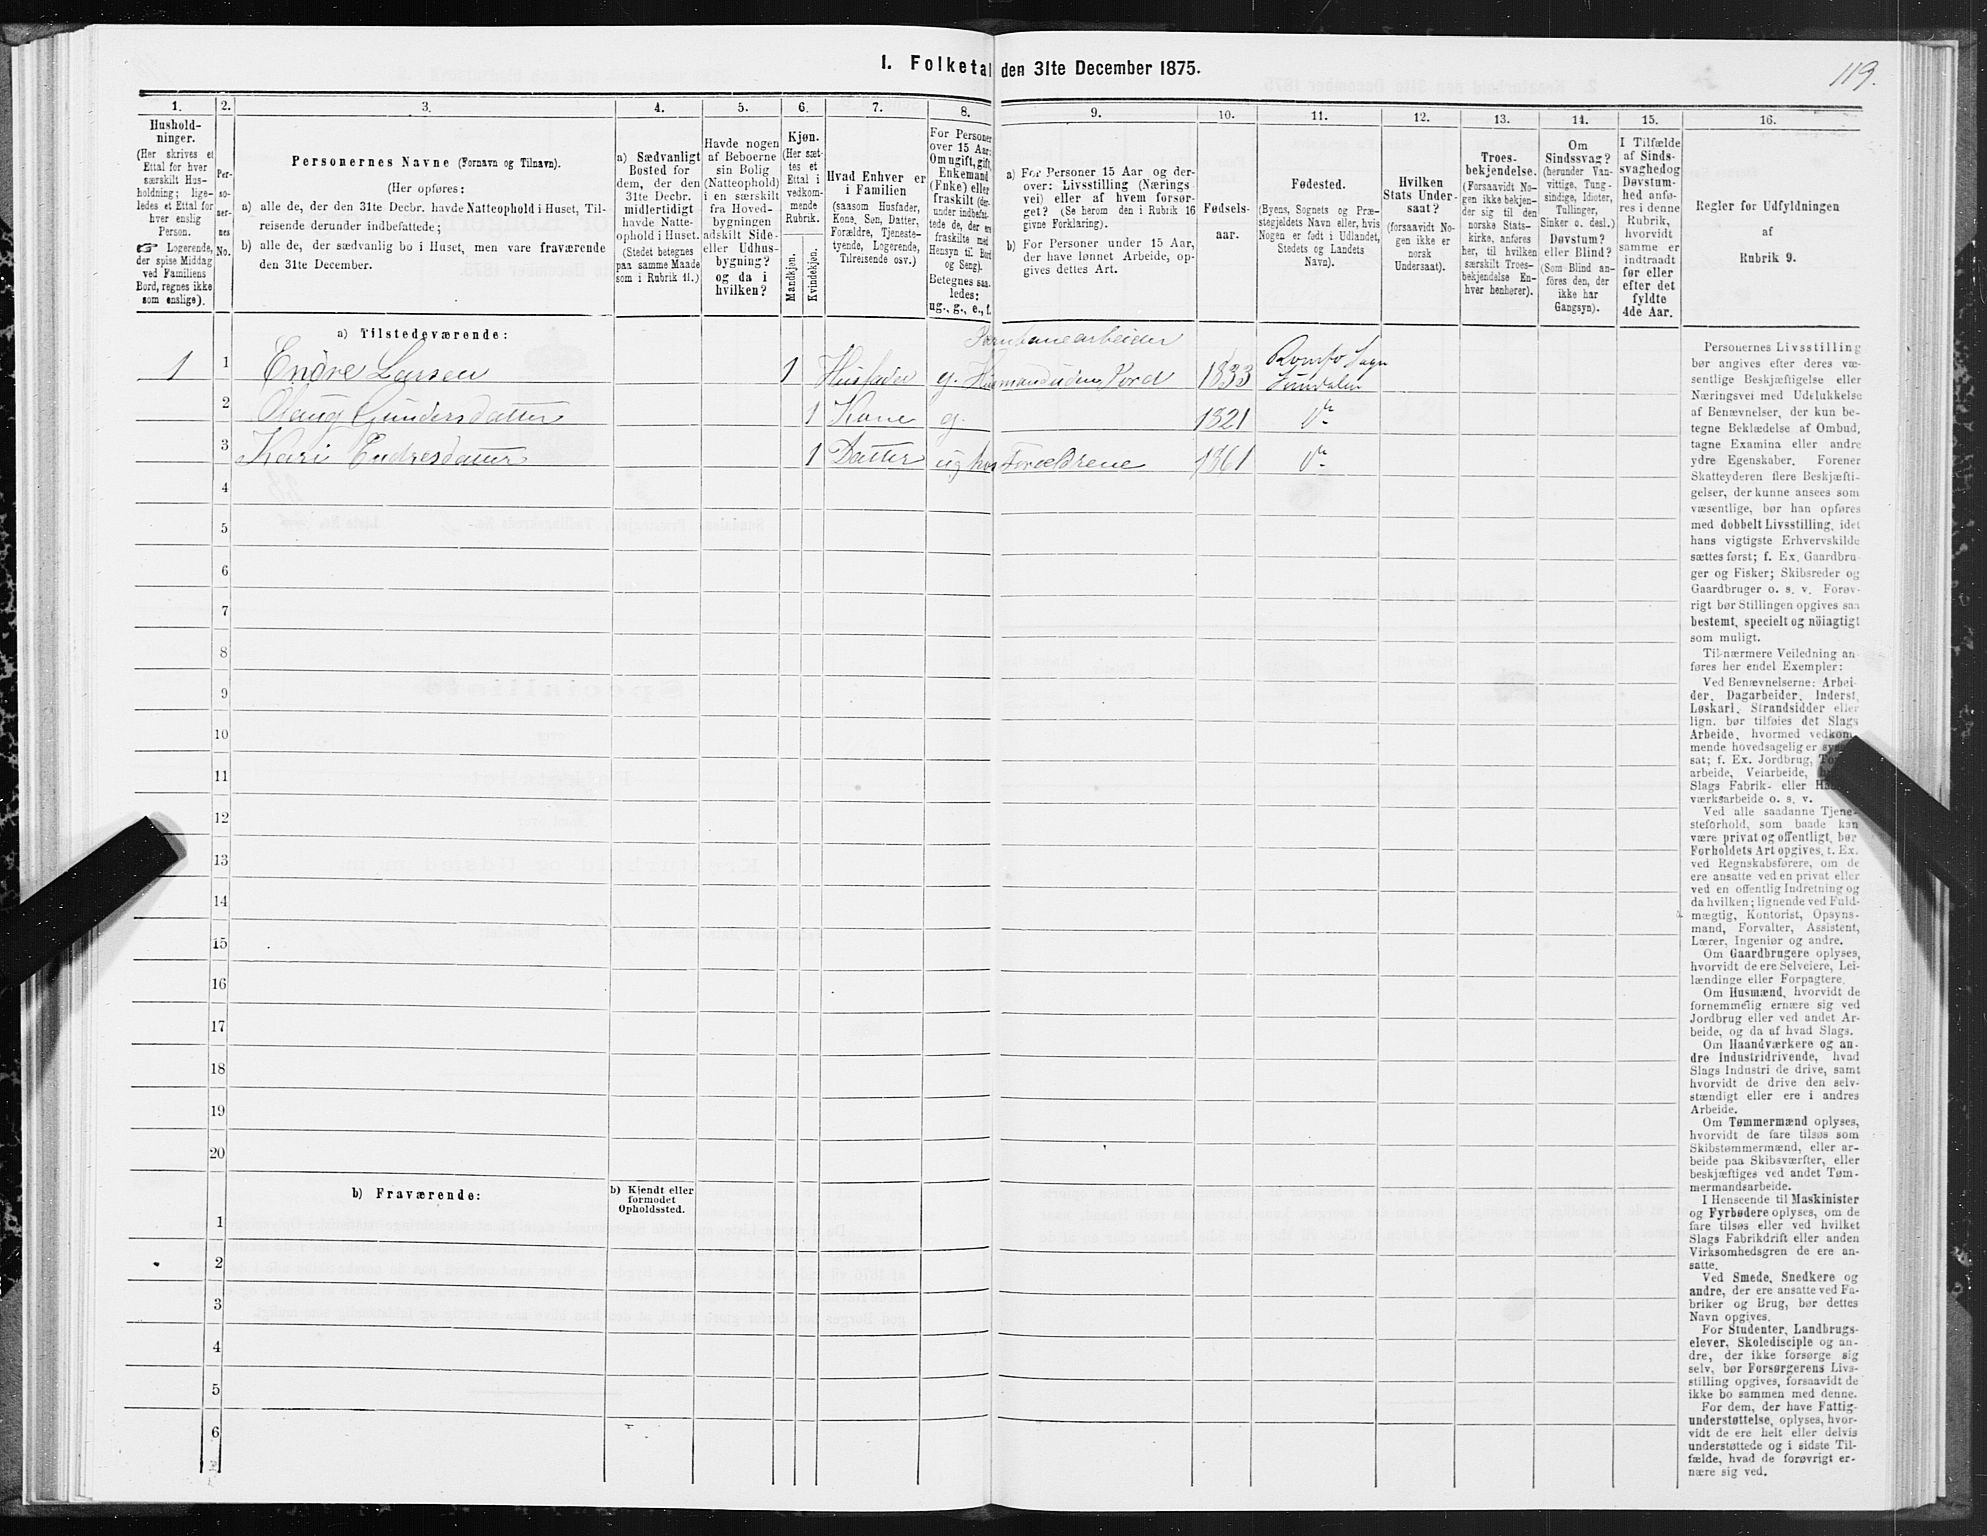 1. Folketal den 31te December 1875.
119.
1.
2.
3.
4.
5.
6.
7.
8.
9.
10.
11.
12.
13.
14.
15.
16.
Hushold-
ninger.
(Her skrives et
Ettal for hver
særskilt Hus-
holdning; lige-
ledes et Ettal for
hver enslig
Person.
☞ Logerende,
der spise Middag
ved Familiens
Bord, regnes ikke
som enslige).
Per-
so-
ner-
nes
No.
Personernes Navne (Fornavn og Tilnavn).
(Her opføres:
a) alle de, der den 31te Decbr. havde Natteophold i Huset, Til-
reisende derunder indbefattede;
b) alle de, der sædvanlig bo i Huset, men vare fraværende
den 31te December.
a) Sædvanligt
Bosted for
dem, der den
31te Decbr.
midlertidigt
havde Natte-
ophold i Huset.
(Stedet betegnes
paa samme Maade
som i Rubrik 11.)
Havde nogen
af Beboerne
sin Bolig
(Natteophold)
i en særskilt
fra Hoved-
bygningen
adskilt Side-
eller Udhus-
bygning?
og da i
hvilken?
Kjøn.
(Her sæt-
tes et
Ettal i
vedkom-
mende
Rubrik.
Mandkjøn.
Kvindekjøn.
Hvad Enhver er
i Familien
(saasom Husfader,
Kone, Søn, Datter,
Forældre, Tjeneste-
tyende, Logerende,
Tilreisende osv.)
For Personer
over 15 Aar:
Om ugift, gift,
Enkemand
(Enke) eller
fraskilt (der-
under indbefat-
tede de, der ere
fraskilte med
Hensyn til Bord
og Seng).
Betegnes saa-
ledes:
ug., g., e., f.
a) For Personer 15 Aar og der-
over: Livsstilling (Nærings-
vei) eller af hvem forsør-
get? (Se herom den i Rubrik 16
givne Forklaring).
b) For Personer under 15 Aar,
der have lønnet Arbeide, op-
gives dettes Art.
Fødsels-
aar.
Fødested.
(Byens, Sognets og Præ-
stegjeldets Navn eller, hvis
Nogen er født i Udlandet,
Stedets og Landets
Navn).
Hvilken
Stats Under-
saat?
(forsaavidt No-
gen ikke er
norsk
Undersaat).
Troes-
bekjendelse.
(Forsaavidt No-
gen ikke bekjen-
der sig til den
norske Stats-
kirke, anføres
her, til hvilken
særskilt Troes-
bekjendelse En-
hver henhører).
Om
Sindssvag?
(herunder Van-
vittige, Tung-
sindige, Idioter,
Tullinger,
Sinker o. desl.)
Døvstum?
eller Blind?
(Som Blind an-
føres den, der
ikke har
Gangsyn).
I Tilfælde
af Sinds-
svaghed og
Døvstum-
hed anfø-
res i denne
Rubrik,
hvorvidt
samme er
indtraadt
før eller
efter det
fyldte
4de Aar.
Regler for Udfyldningen
af
Rubrik 9.
a) Tilstedeværende:
Jernbanearbeider
1 1 Endre Larsen 1 Husfader g. Husmand uden Jord 1833 Romfo Sogn Sundalen
2 Olaug Gundersdatter 1 Kone g. 1821 do
3 Kari Endresdatter 1 Datter ug hos Forældrene 1861 do
4
5
6
7
8
9
10
11
12
13
14
15
16
17
18
19
20
b) Fraværende:
b) Kjendt eller
formodet
Opholdssted.
1
2
3
4
5
6
Personernes Livsstilling
bør angives efter deres væ-
sentlige Beskjæftigelse eller
Næringsvei med Udelukkelse
af Benævnelser, der kun be-
tegne Beklædelse af Ombud,
tagne Examina eller andre
ydre Egenskaber. Forener
Skatteyderen flere Beskjæfti-
gelser, der kunne ansees som
væsentlige, bør han opføres
med dobbelt Livsstilling, idet
hans vigtigste Erhvervskilde
sættes først; f. Ex. Gaardbru-
ger og Fisker; Skibsreder og
Gaardbruger o. s. v. Forøv-
rigt bør Stillingen opgives saa
bestemt, specielt og nöiagtigt
som muligt.
Til nærmere Veiledning an-
føres her endel Exempler:
Ved Benævnelserne: Arbei-
der, Dagarbeider, Inderst,
Løskarl, Strandsidder eller
lign. bør tilføies det Slags
Arbeide, hvormed vedkom-
mende hovedsagelig er syssel-
sat; f. Ex. Jordbrug,
arbeide, Veiarbeide,
Slags Fabrik- eller
værksarbeide o. s. v.
Ved alle saadanne Tjene-
steforhold, som baade kan
være privat og offentligt, bør
Forholdets Art opgives, t. Ex.
ved Regnskabsførere, om de
ere ansatte ved en privat eller
ved en offentlig Indretning og
da hvilken; lignende ved Fuld-
mægtig, Kontorist, Opsyns-
mand, Forvalter, Assistent,
Lærer, Ingeniør og andre.
Om Gaardbrugere oplyses,
hvorvidt de ere Selveiere, Lei-
lændinge eller Forpagtere.
Om Husmænd, hvorvidt de
fornemmelig ernære sig ved
Jordbrug eller ved andet Ar-
beide, og da af hvad Slags.
Om Haandværkere og an-
dre Industridrivende, hvad
Slags Industri de drive, samt
hvorvidt de drive den selv-
stændigt eller ere i andres
Arbeide.
Om Tømmermænd oplyses,
hvorvidt de fare tilsøs som
Skibstømmermænd, eller ar-
beide paa Skibsværfter, eller
beskjæftiges ved andet Tøm-
mermandsarbeide.
I Henseende til Maskinister
og Fyrbødere oplyses, om de
fare tilsøs eller ved hvilket
Slags Fabrikdrift eller anden
Virksomhedsgren de ere an-
satte.
Ved Smede, Snedkere og
andre, der ere ansatte ved Fa-
briker og Brug, bør dettes
Navn opgives.
For Studenter, Landbrugs-
elever, Skoledisciple og an-
dre, der ikke forsørge sig
selv, bør Forsørgerens Livs-
stilling opgives, forsaavidt de
ikke bo sammen med denne.
For dem, der have Fattig-
understøttelse, oplyses, hvor-
vidt de ere helt eller delvis
understøttede og i sidste Til-
fælde, hvad de forøvrigt er-
nære sig ved.